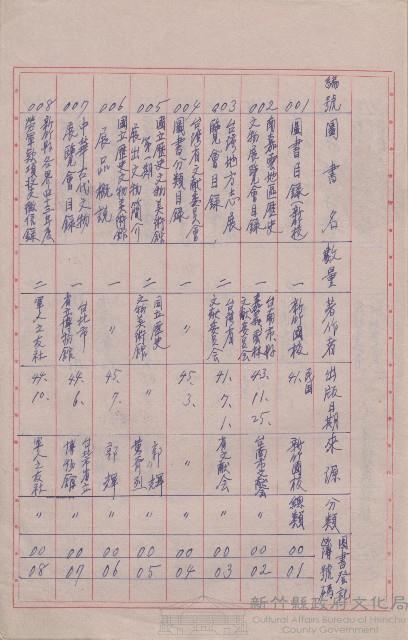 編號 圖書名 數量 著作者 出版日期 來源 分類 圖書登記簿號碼
001 圖書目錄(新竹校) 一 新竹國校 民國41. 新竹國校 總類 0001
002 南嘉雲地區歷史文物展覽會目錄 一 台南市縣嘉義雲林文獻委員會 43.11.25. 台南市文獻會 〃 0002
003 台灣地方志展覽會目錄 二 台灣省文獻委員會 41.7.1. 省文獻會 〃 0003
004 台灣省文獻委員會圖書分類目錄 一 〃 45.3. 〃 〃 0004
005 國立歷史文物美術館第一期展出文物簡介 二 國立歷史文物美術館 〃 郭輝 〃 0005
006 國立歷史文物美術館展品概說 一 〃 45.7. 郭輝 〃 0006
007 中華古代文物展覽會目錄 一 台北市省立博物館 44.6. 台北市省立博物館 〃 0007
008 新竹縣各界四十三年度勞軍款項收支徵信錄 二 軍人之友社 44.10. 軍人之友社 〃 0008
新竹縣政府文化局
Cultural Affairs Bureau of Hsinchu County Government